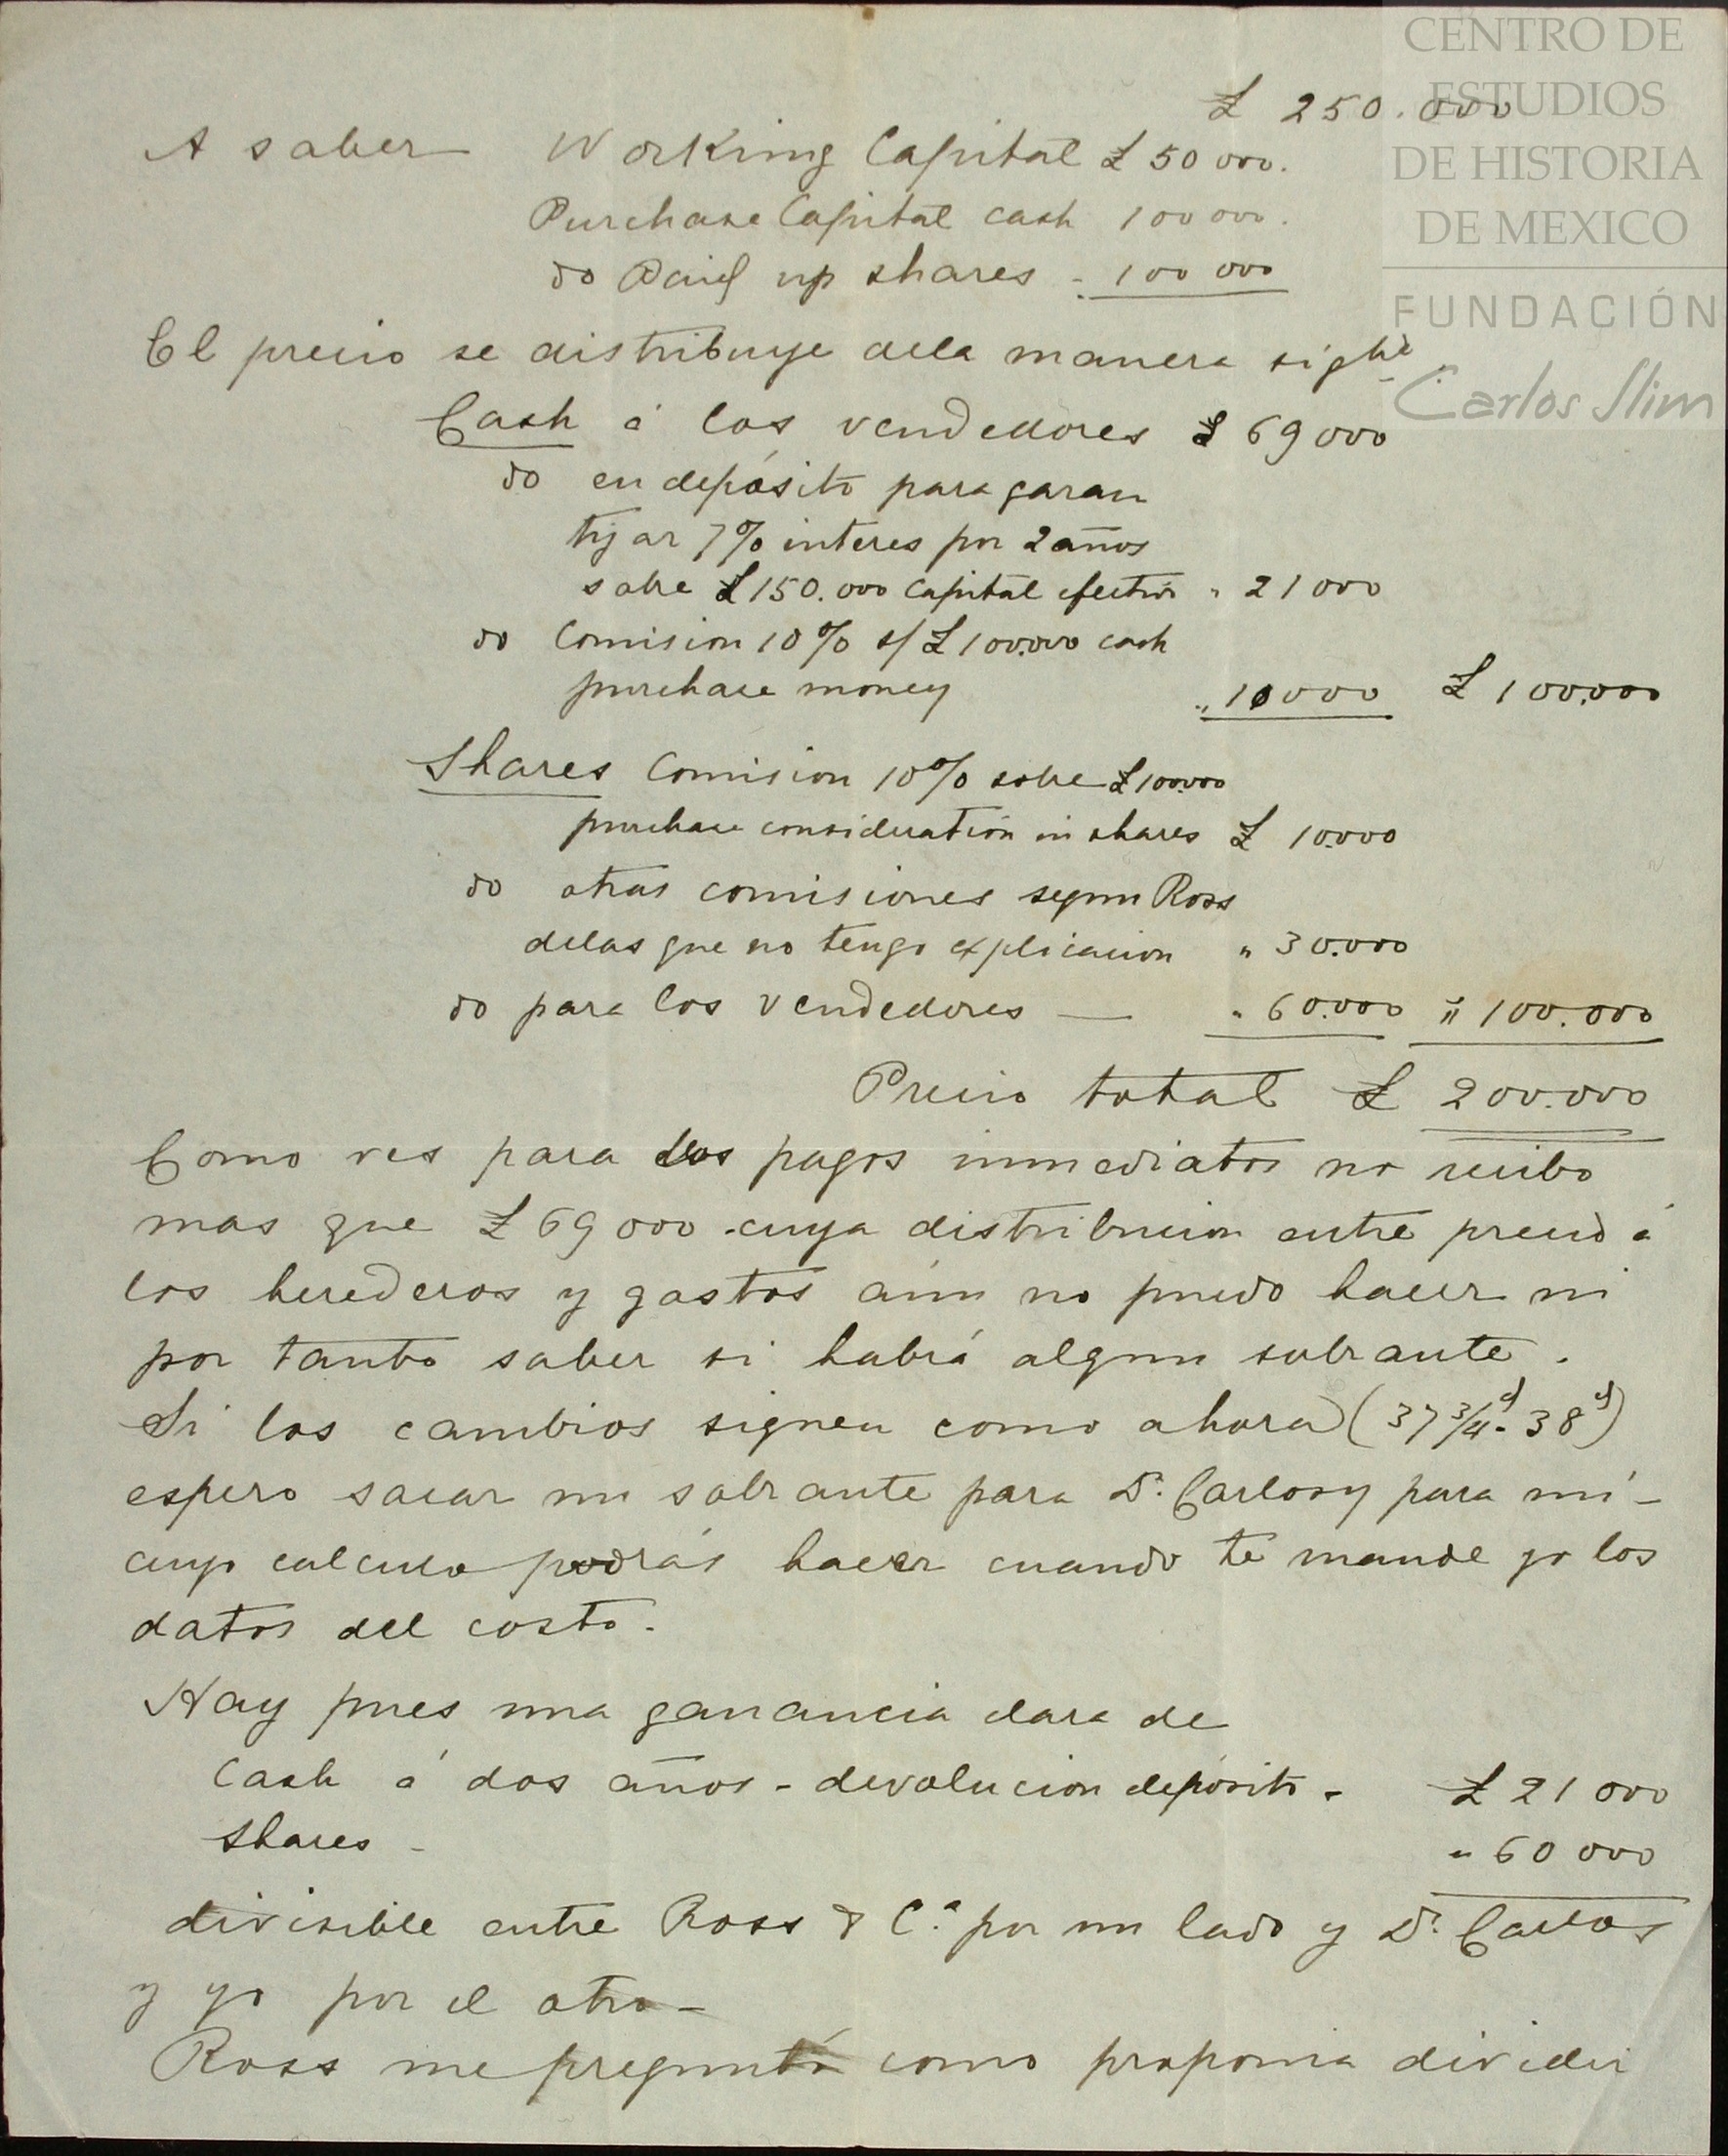 £ 250.000
A saber Working Capital £ 50 000.
Purchase Capital cash 100 000.
do Paid up shares " 100 000
El precio se distribuye dela manera sigte
Cash á los vendedores £ 69 000
do en depósito para garan
tizar 7% interes por 2 años
sobre £ 150.000 capital efectivo " 21 000
do Comision 10% s/ £ 100.000 cash
purchase money " 10 000 £ 100.000
Shares Comision 10% sobre £ 100.000
purchase consideration in shares £ 10.000
do otras comisiones segun Ross
delas que no tengo explicacion " 30.000
do para los vendedores — " 60.000 " 100.000
Precio total £ 200.000
Como ves para los pagos inmediatos no recibo
mas que £ 69 000 cuya distribucion entre precio á
los herederos y gastos aún no puedo hacer ni
por tanto saber si habrá algun sobrante.
Si los cambios siguen como ahora (37 3/4d - 38d)
espero sacar un sobrante para Dn. Carlos y para mí -
cuyo calculo podrás hacer cuando te mande yo los
datos del costo.
Hay pues una ganancia clara de
Cash á dos años - devolucion depósito - £ 21 000
Shares - " 60 000
divisible entre Ross & Ca. por un lado y Dn. Carlos
y yo por el otro -
Ross me preguntó como proponia dividir
CENTRO DE
ESTUDIOS
DE HISTORIA
DE MEXICO
FUNDACIÓN
Carlos Slim